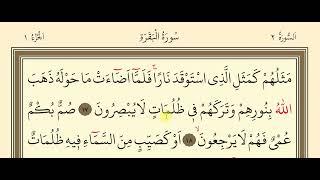 اَلسُّورَةُ ٢ سُورَةُ الْبَقَرَةِ اَلْجُزْءُ ١
مَثَلُهُمْ كَمَثَلِ الَّذِي اسْتَوْقَدَ نَارًاۚ فَلَمَّٓا اَضَٓاءَتْ مَا حَوْلَهُ ذَهَبَ
اللّٰهُ بِنُورِهِمْ وَتَرَكَهُمْ فٖي ظُلُمَاتٍ لَا يُبْصِرُونَ ﴿١٧﴾ صُمٌّ بُكْمٌ
عُمْيٌ فَهُمْ لَا يَرْجِعُونَۙ ﴿١٨﴾ اَوْ كَصَيِّبٍ مِنَ السَّمَٓاءِ فٖيهِ ظُلُمَاتٌ